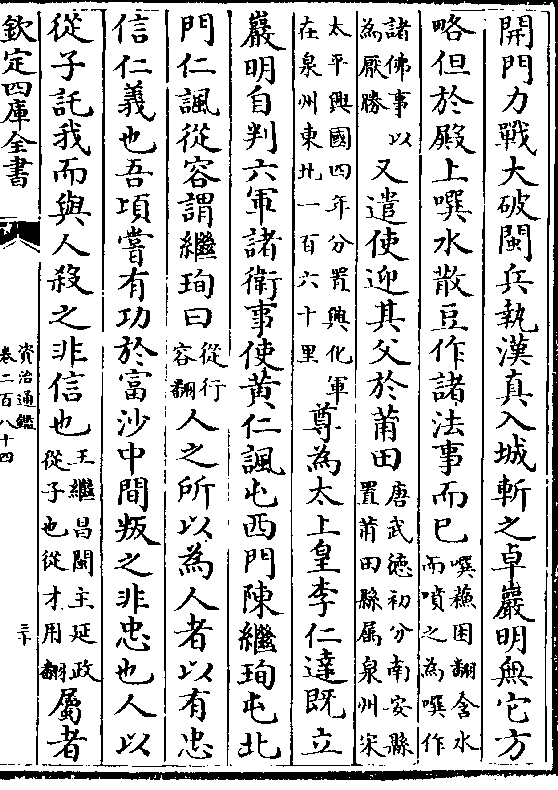 開門力戰大破閩兵執漢真入城斬之卓巖明無它方
略但於殿上噀水散豆作諸法事而已噀穌困翻含水而噴之為噀作
諸佛事以為厭勝又遣使迎其父於莆田唐武德初分南安縣置莆田縣屬泉州宋
太平興國四年分置興化軍在泉州東北一百六十里尊為太上皇李仁達既立
巖明自判六軍諸衛事使黄仁諷屯西門陳繼珣屯北
門仁諷從容謂繼珣曰從行容翻人之所以為人者以有忠
信仁義也吾頃嘗有功於富沙中間叛之非忠也人以
從子託我而與人殺之非信也王繼昌閩主延政從子也從才用翻屬者
欽定四庫全書
資治通鑑
卷二百八十四